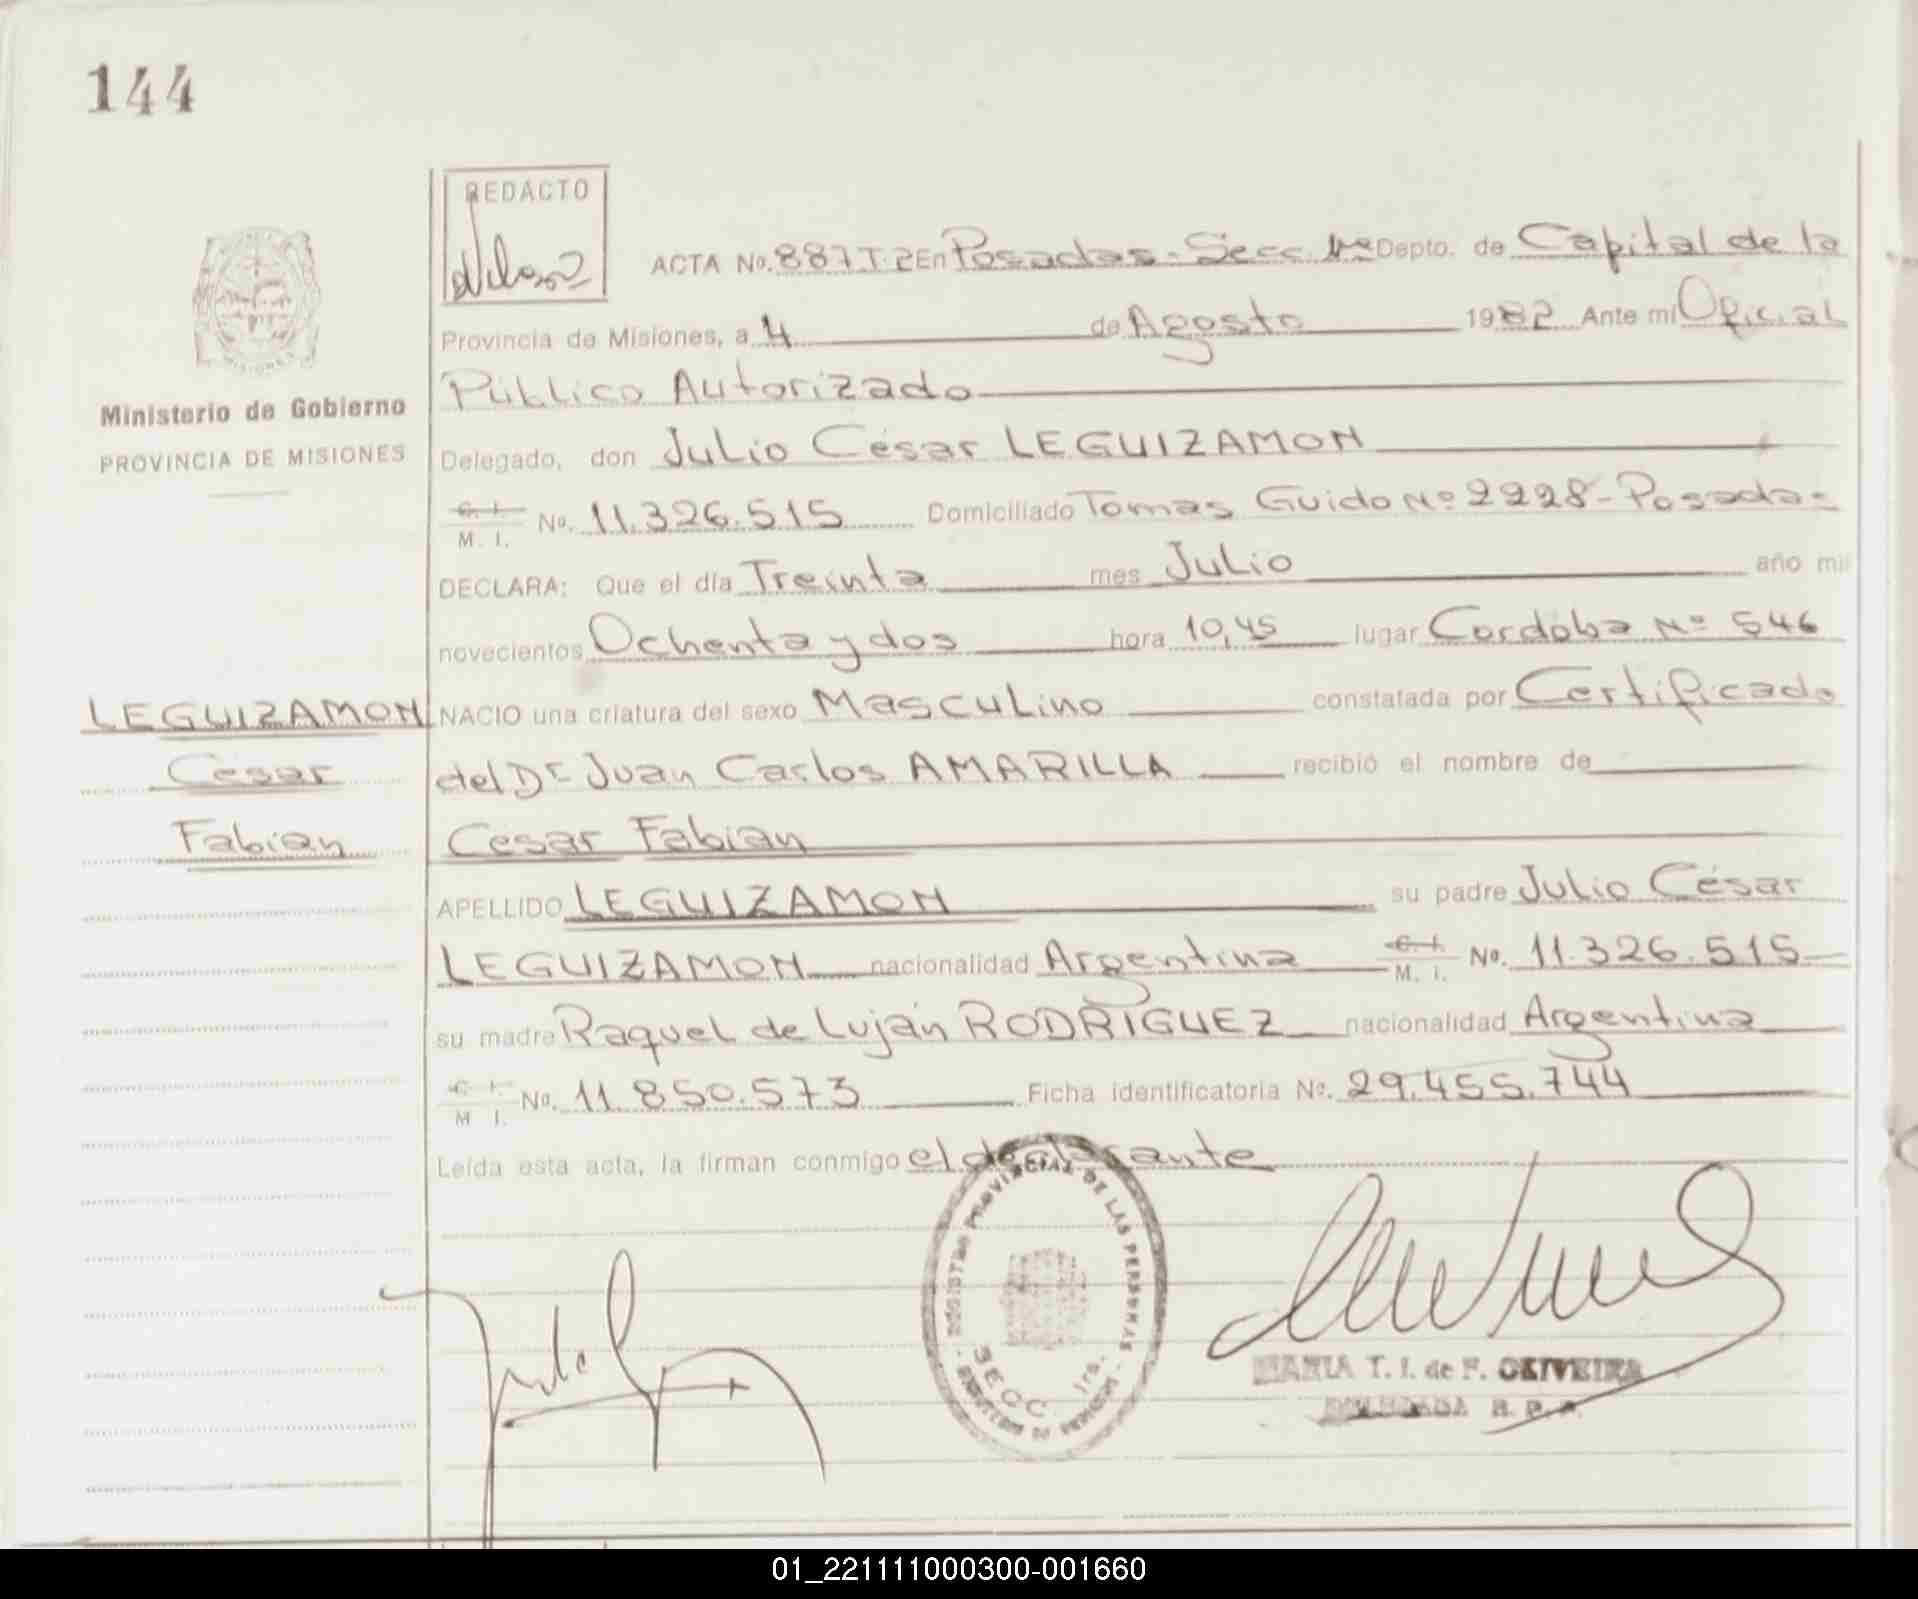 144
REDACTO
ACTA No. 887 T.2 En Posadas - Secc. 1ra Depto. de Capital de la
Provincia de Misiones, a 4 de Agosto 1982 Ante mi Oficial
Público Autorizado
MISIONES
Ministerio de Gobierno
PROVINCIA DE MISIONES
Delegado, don Julio César LEGUIZAMON
C. I.
M. I. No. 11.326.515 Domiciliado Tomas Guido Nº 2228 - Posadas
DECLARA: Que el día Treinta mes Julio año mil
novecientos Ochenta y dos hora 10,45 lugar Cordoba Nº 546
LEGUIZAMON
NACIO una criatura del sexo Masculino constatada por Certificado
César
del Dr Juan Carlos AMARILLA recibió el nombre de
Fabian
César Fabian
APELLIDO LEGUIZAMON su padre Julio César
LEGUIZAMON nacionalidad Argentina C. I.
M. I. No. 11.326.515
su madre Raquel de Luján RODRIGUEZ nacionalidad Argentina
C. I.
M. I. No. 11.850.573 Ficha identificatoria Nº. 29.455.744
Leída esta acta, la firman conmigo el declarante
REGISTRO PROVINCIAL DE LAS PERSONAS
SECC. 1ra.
MARIA T. I. de F. OLIVEIRA
DELEGADA R. P. P.
01_221111000300-001660